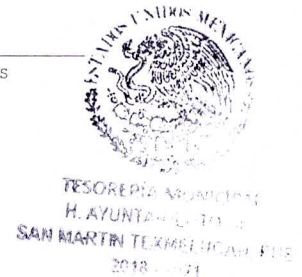 S
ESTADOS UNIDOS MEXICANOS
TESORERÍA MUNICIPAL
H. AYUNTAMIENTO
SAN MARTIN TEXMELUCAN, PUE
2018 - 2021